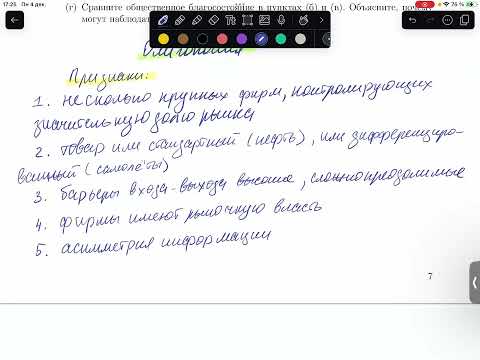 17:25 Пн 4 дек.
76 %
(г) Сравните общественное благосостояние в пунктах (б) и (в). Объясните, почему
могут наблюдат
Олигополия
Признаки:
1. несколько крупных фирм, контролирующих
значительную долю рынка
2. товар или стандартный (нефть), или дифференциро-
ванный (самолёты)
3. барьеры входа-выхода высокие, сложнопреодолимые
4. фирмы имеют рыночную власть
5. асимметрия информации
7